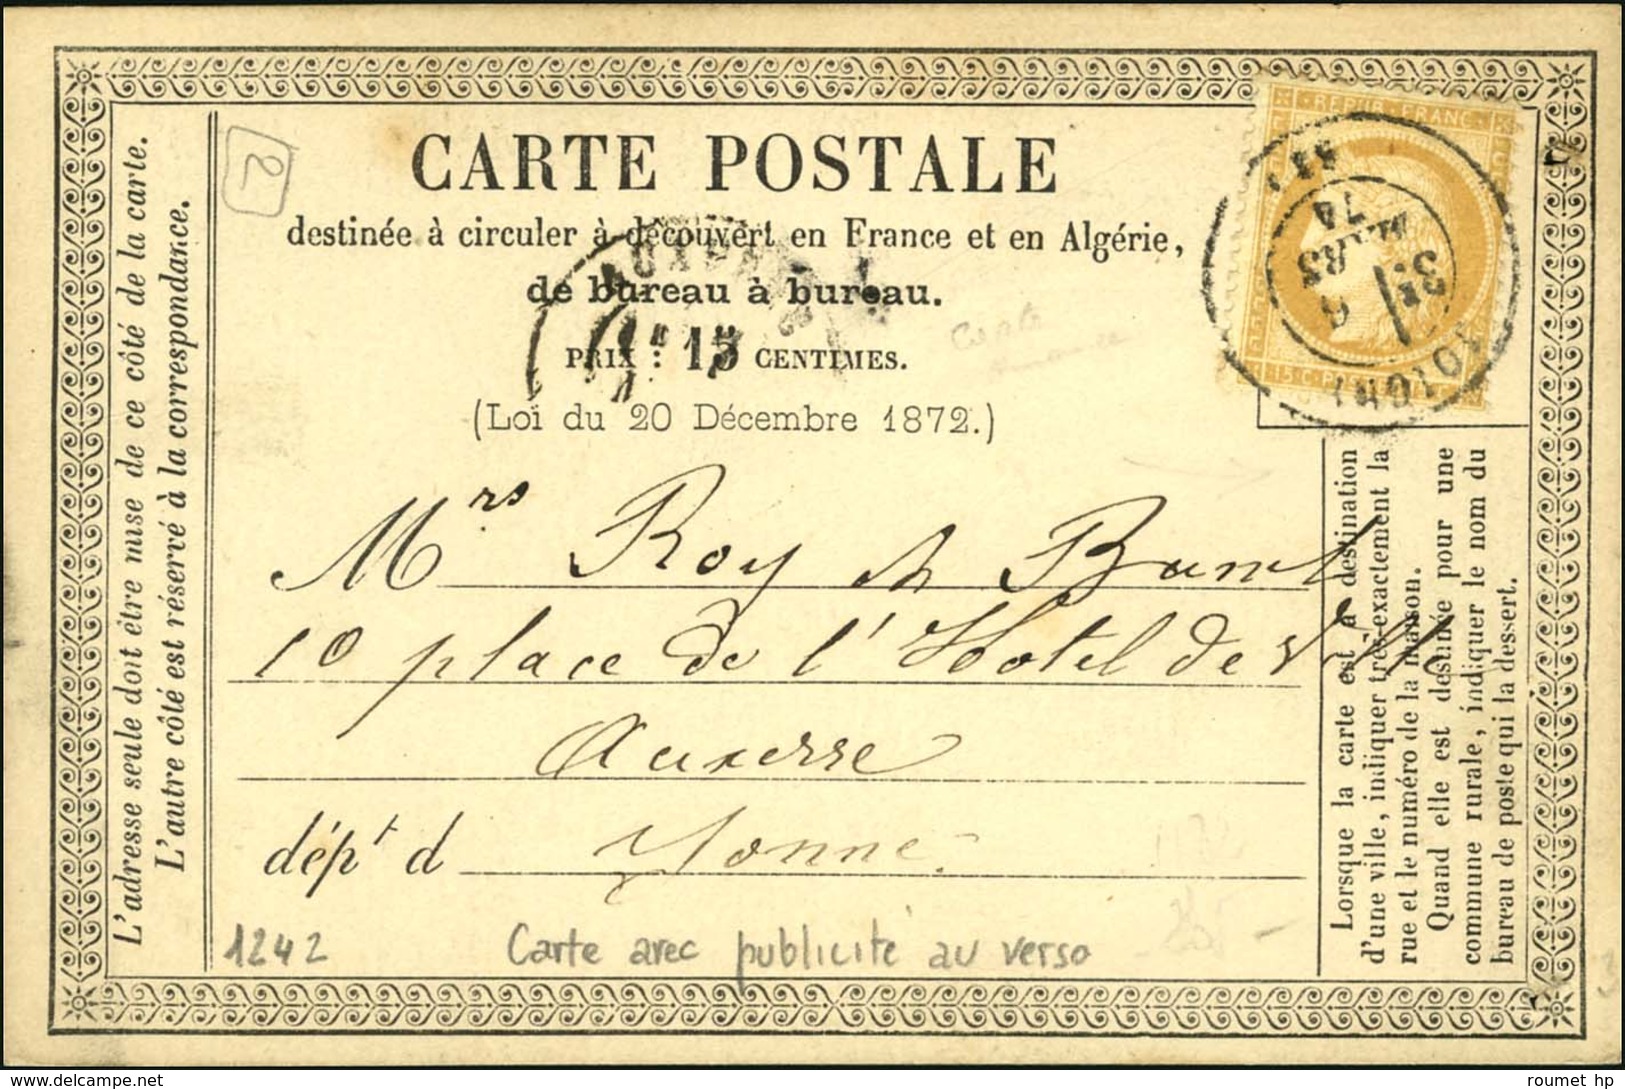 L'adresse seule doit être mise de ce côté de la carte.
L'autre côté est réservé à la correspondance.
2
CARTE POSTALE
destinée à circuler à découvert en France et en Algérie,
de bureau à bureau.
PRIX : 15 CENTIMES.
(Loi du 20 Décembre 1872.)
REPUB. FRANC.
15 C. POSTES
6
MARS
74
Mrs Roy &
10 place de l'Hotel de Ville
Auxerre
dépt d Yonne
Lorsque la carte est à destination
d'une ville, indiquer très-exactement la
rue et le numéro de la maison.
Quand elle est destinée pour une
commune rurale, indiquer le nom du
bureau de poste qui la dessert.
1242
Carte avec publicité au verso
roumet hp